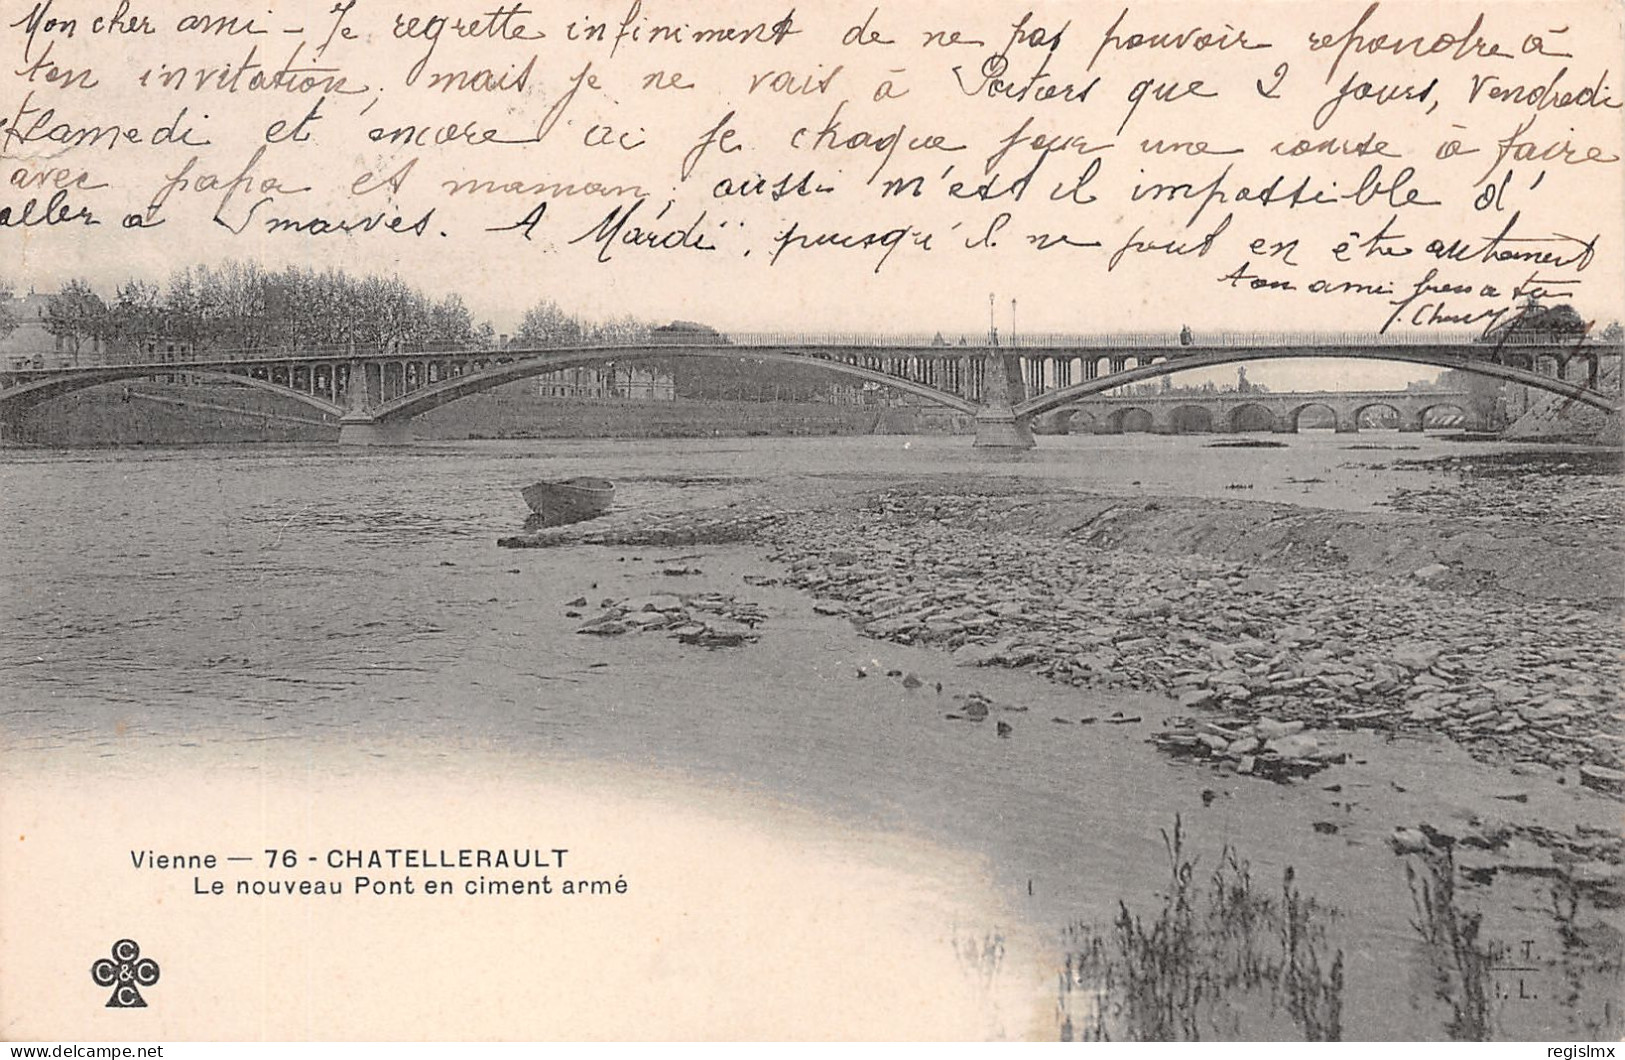 Mon cher ami - Je regrette infiniment de ne pas pouvoir repondre à
ton invitation, mais je ne vais à Poitiers que 2 jours, Vendredi
Samedi et encore ai je chaque jour une course à faire
avec papa et maman, aussi m'est il impossible d'
aller à Smarves. A Mardi, puisqu'il ne peut en être autrement
ton ami
Vienne — 76 - CHATELLERAULT
Le nouveau Pont en ciment armé
C C & C C
N. T.
I. L.
delcampe.net
regislmx